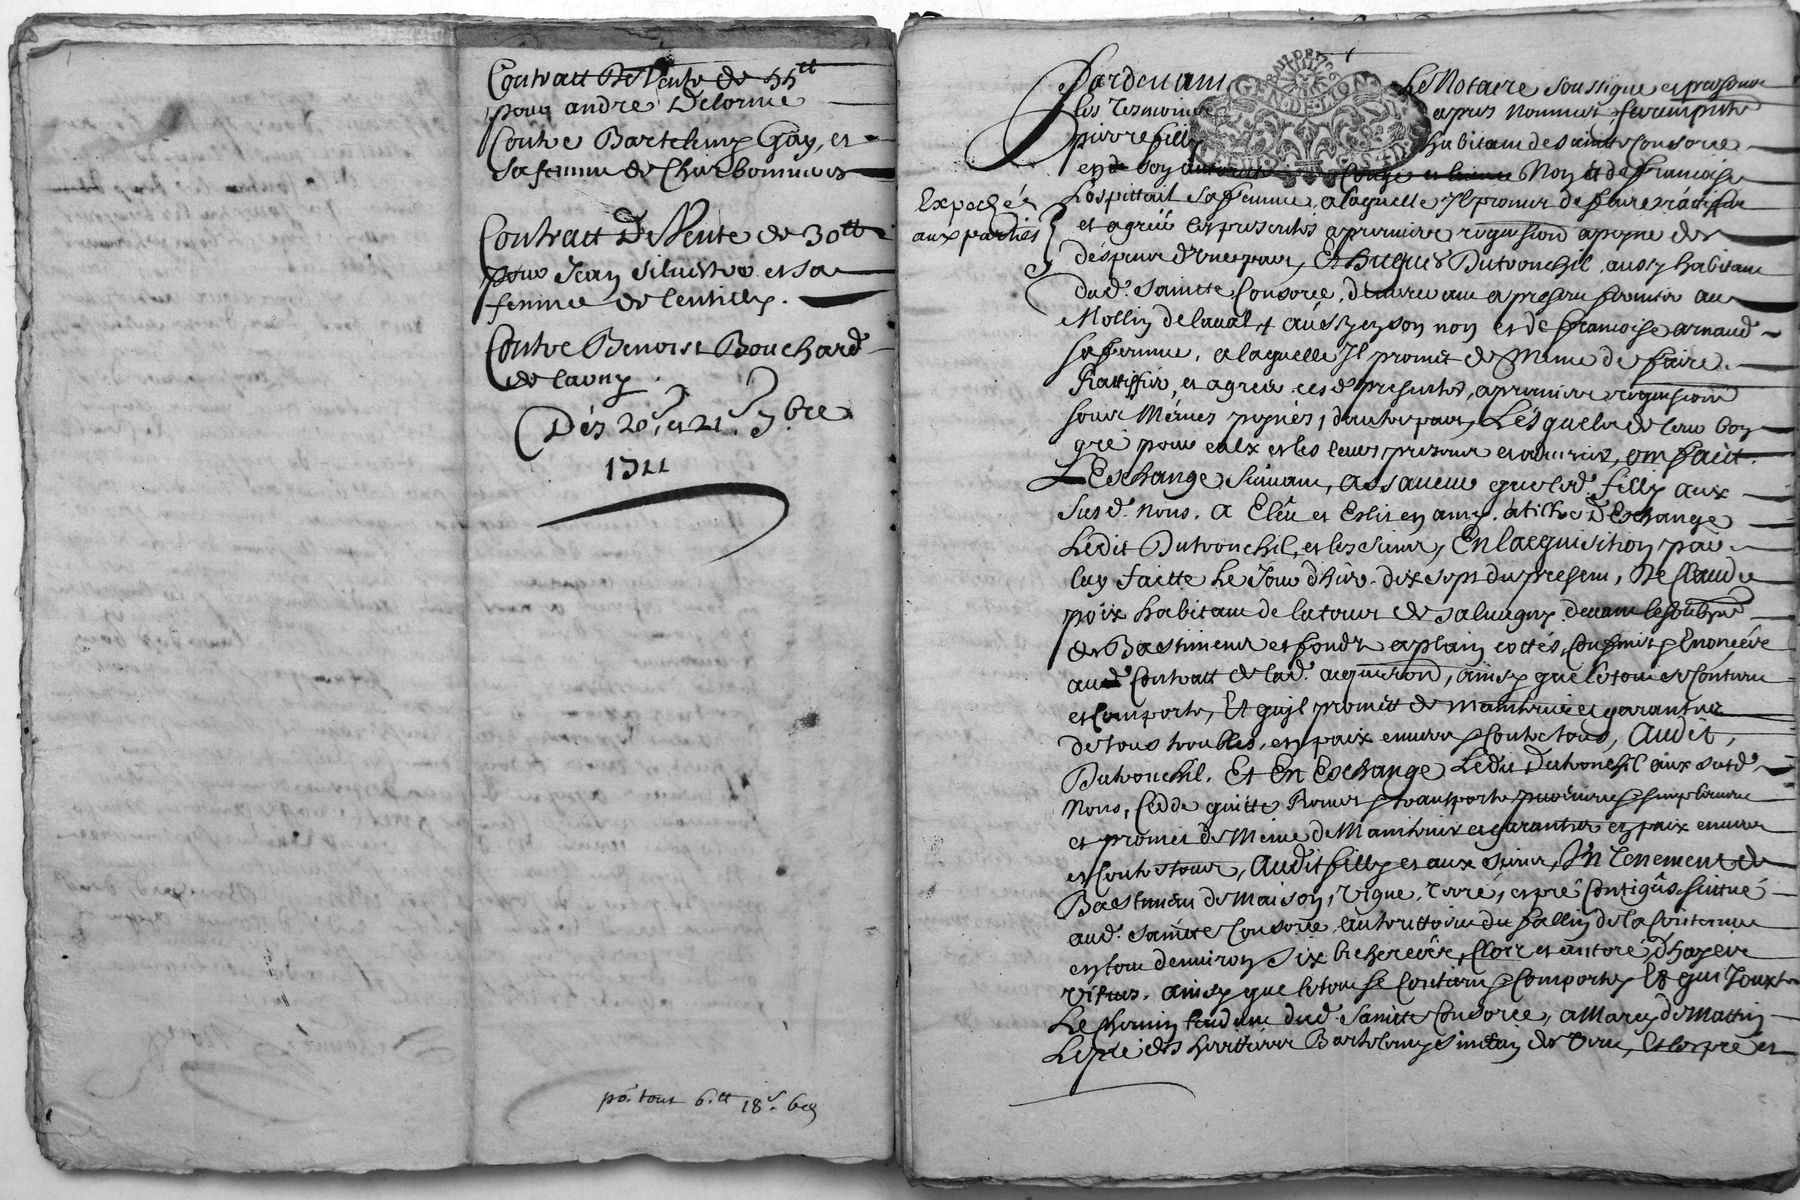 Contratt De Vente de 55tt
pour andré Delorme
Contre Bartelemy Gay, et
sa femme de Charbonnieres
Contratt De Vente de 30tt
pour Jean Silvestre et sa
femme de lentilly.
Contre Benoist Bouchard
de lavny
Dés 20e, et 21e 7.bre
1711
po. tout 6.tt 18.s 6d
Pardevant Le Notaire soussigné et presence
les tesmoins apres nommés furent presents
pierre filly habitant de sainte Consorce
en son Nom et de francoise
Lospittail sa femme, a laquelle Il promet de faire ratiffier
Expedié
aux parties
et agreer les presentes a premiere requision a peyne de
déspens d'une part, Et hugues Dutronchil, aussy habitant
dud. Saincte Consorce, demeurant a present fermier au
Mollin de laval, aussy en son nom et de francoise arnaud
sa femme, a laquelle Il promet de Meme de faire
Rattiffier, et agreer ces d. presentes, a premiere requision
sous Mémes peynes, d'autre part, Lésquels de leur bon
gré pour eulx et les leurs presents et advenir, ont fait
L'Eschange suivant, assavoir que led. filly aux
susd. noms. A Eleu et Eslit en amy, a tiltre D'Eschange
Ledit Dutronchil, et les siens, En lacquisition par
luy faitte Le Jour d'hier dix sept du present, De Claude
poix habitant de la tour de salvagny devant le soubsigné
de Bastiment et fondz a plain cottés, Confinés & Enoncée
aud. Contratt de lad. acquision, ainsy que le tout se Contient
et Comporte, Et qu'il promett de maintenir et garantir
de tous troubles, en paix envers & Contre tous, Audit,
Dutronchil. Et En Eschange Ledit Dutronchil aux susd.
Noms, Cedde quitte Remet & transporte purement & simplement
et promet de Méme de Maintenir et garantir en paix envers
et Contre tous, Audit filly et aux siens, Un Tenement de
Bastiment de Maison, Vigne, Terre, et pré Contigûs scittué
aud. sainte Consorce, au territtoire du fallin de la Contenue
en tout d'environ six bicherées, Clos et entoré d'hayes
Vifves. ainsy que le tout se Contient & Comporte, Et qui Jouxte
Le Chemin tendant dud. Sainte Consorce, a Marcy de Mattin
Le pré des herittiers Bartelemy de Vent, Et le pré et